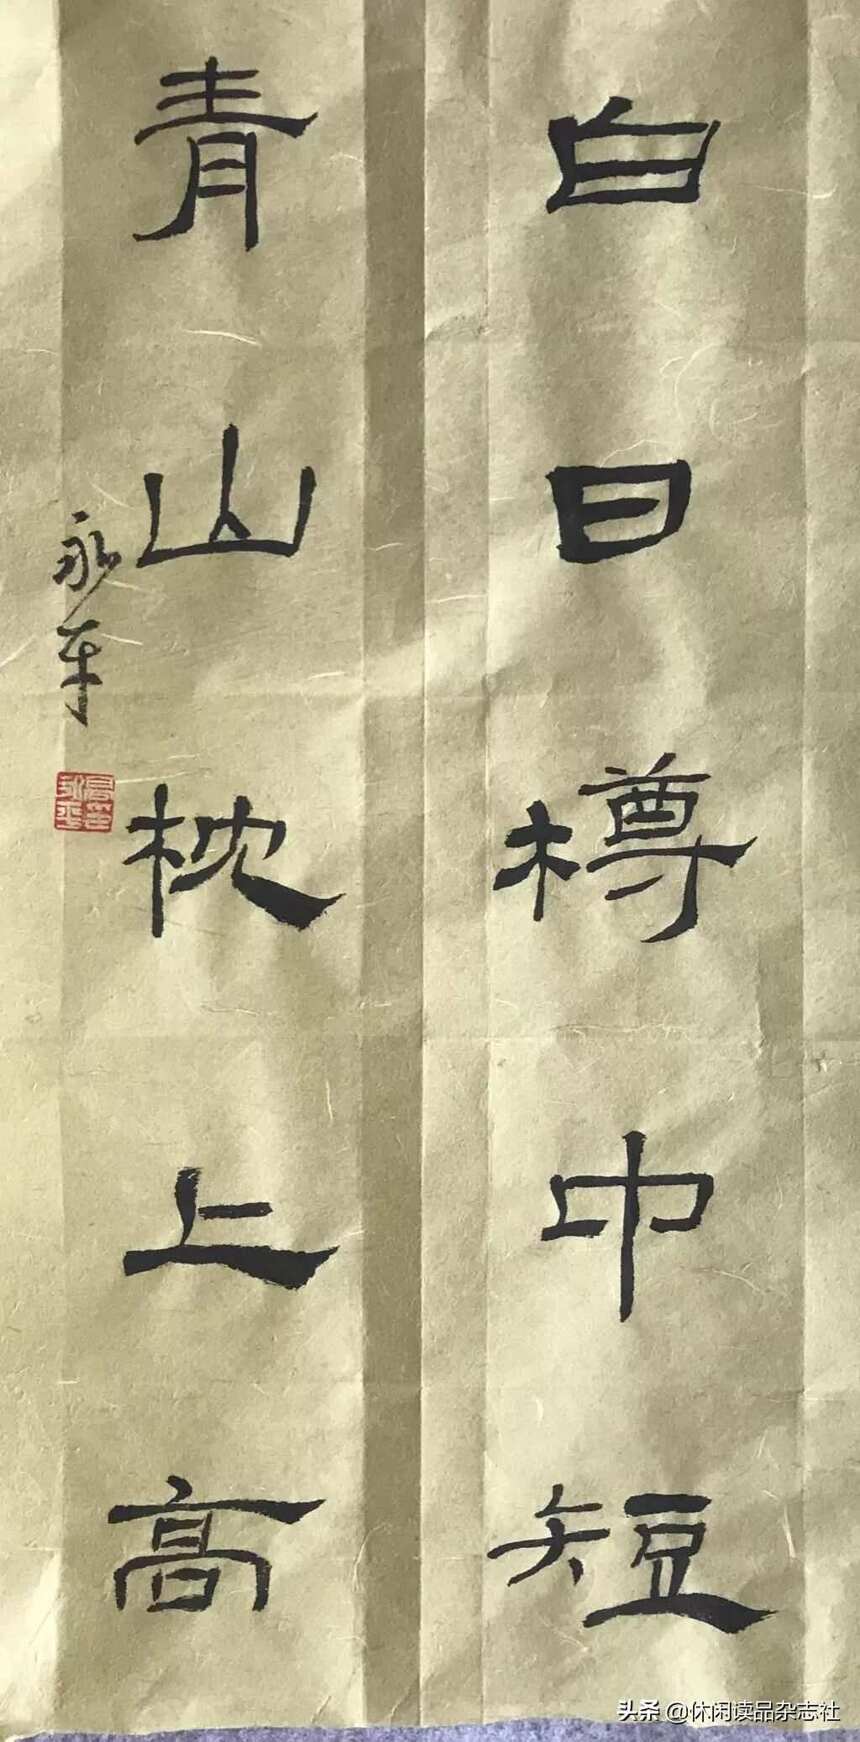 白日樽中短
青山枕上高
永平
头条 @休闲读品杂志社